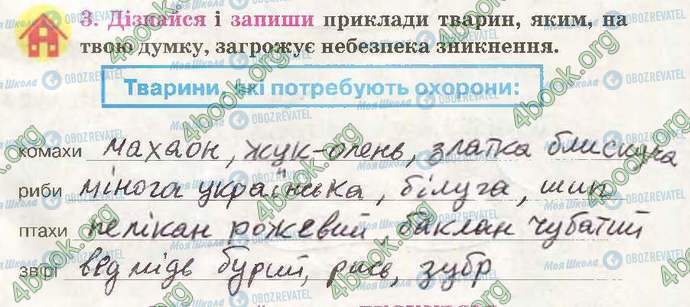 3. Дізнайся і запиши приклади тварин, яким, на
твою думку, загрожує небезпека зникнення.
Тварини, які потребують охорони:
комахи махаон, жук-олень, златка блискуча
риби мінога українська, білуга, шип
птахи пелікан рожевий баклан чубатий
звірі ведмідь бурий, рись, зубр
4book.org
Моя Школа OBOZREVATEL